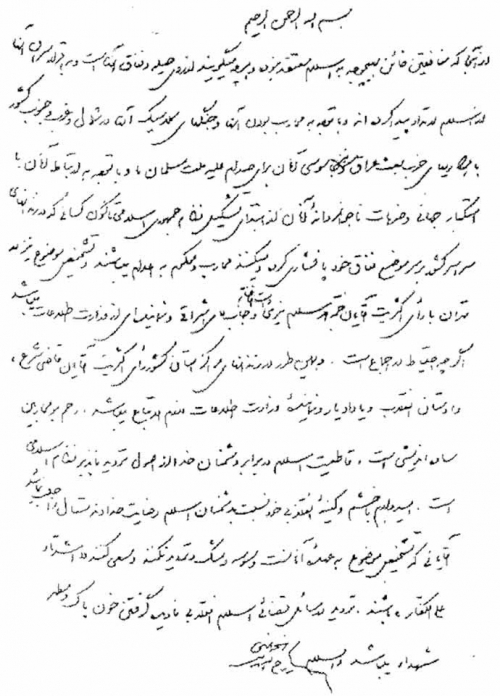 بسم الله الرحمن الرحیم
از آنجا که منافقین خائن بهیچوجه به اسلام معتقد نبوده و هر چه میگویند از روی حیله و نفاق آنهاست و به اقرار سران آنها
از اسلام ارتداد پیدا کرده اند و با توجه به محارب بودن آنها و جنگهای کلاسیک آنها در شمال و غرب و جنوب کشور
با همکاریهای حزب بعث عراق و نیز جاسوسی آنان برای صدام علیه ملت مسلمان ما و با توجه به ارتباط آنان با
استکبار جهانی و ضربات ناجوانمردانه آنان از ابتدای تشکیل نظام جمهوری اسلامی تاکنون کسانی که در زندانهای
سراسر کشور بر سر موضع نفاق خود پافشاری کرده و میکنند محارب و محکوم به اعدام میباشند و تشخیص موضوع نیز در
تهران با رأی اکثریت آقایان حجة الاسلام نیری دامت افاضاته و جناب آقای اشراقی و نماینده ای از وزارت اطلاعات میباشد
اگر چه احتیاط در اجماع است . و همین طور در زندانهای مراکز استان کشور رأی اکثریت آقایان قاضی شرع ،
دادستان انقلاب و یا دادیار و نماینده وزارت اطلاعات لازم الاتباع میباشد . رحم بر محاربین
ساده اندیشی است ، قاطعیت اسلام در برابر دشمنان خدا از اصول تردید ناپذیر نظام اسلامی
است . امیدوارم با خشم و کینه انقلابی خود نسبت به دشمنان اسلام رضایت خداوند متعال را جلب نمائید
آقایانی که تشخیص موضوع به عهده آنان است وسوسه و شک و تردید نکنند و سعی کنند اشداء
علی الکفار باشند . تردید در مسائل قضائی اسلام انقلابی نادیده گرفتن خون پاک و مطهر
شهدا میباشد والسلام
روح الله الموسوی الخمینی